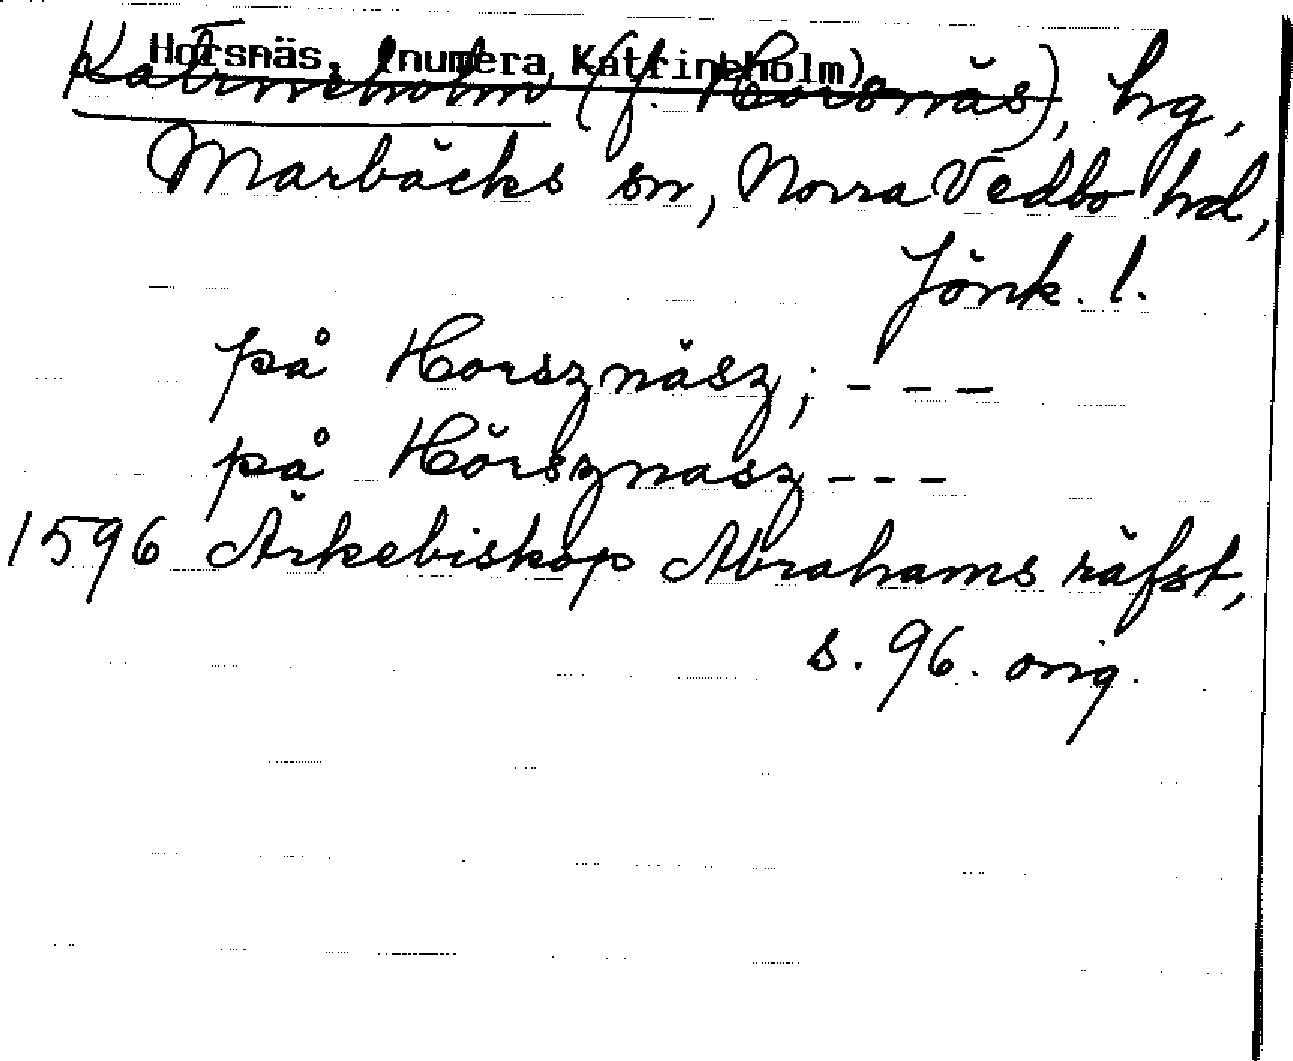 Horsnäs, (numera Katrineholm)
Katrineholm (f. Horsnäs), hg,
Marbäcks sn, Norra Vedbo hd,
Jönk. l.
på Horsznäsz; - - -
på Hörsznasz - - -
1596 Ärkebiskop Abrahams räfst,
s. 96. orig.